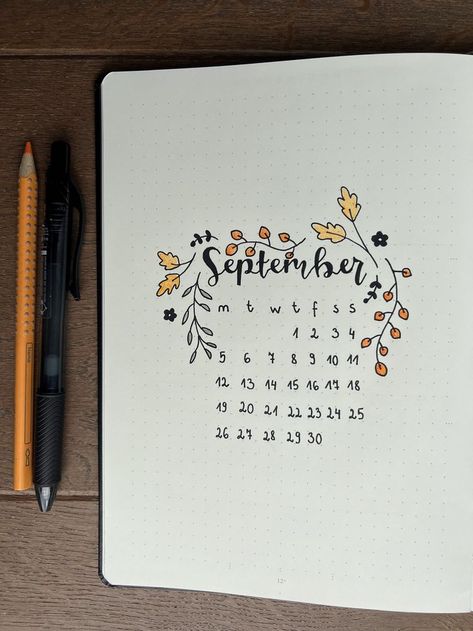 September
m t w t f s s
1 2 3 4
5 6 7 8 9 10 11
12 13 14 15 16 17 18
19 20 21 22 23 24 25
26 27 28 29 30